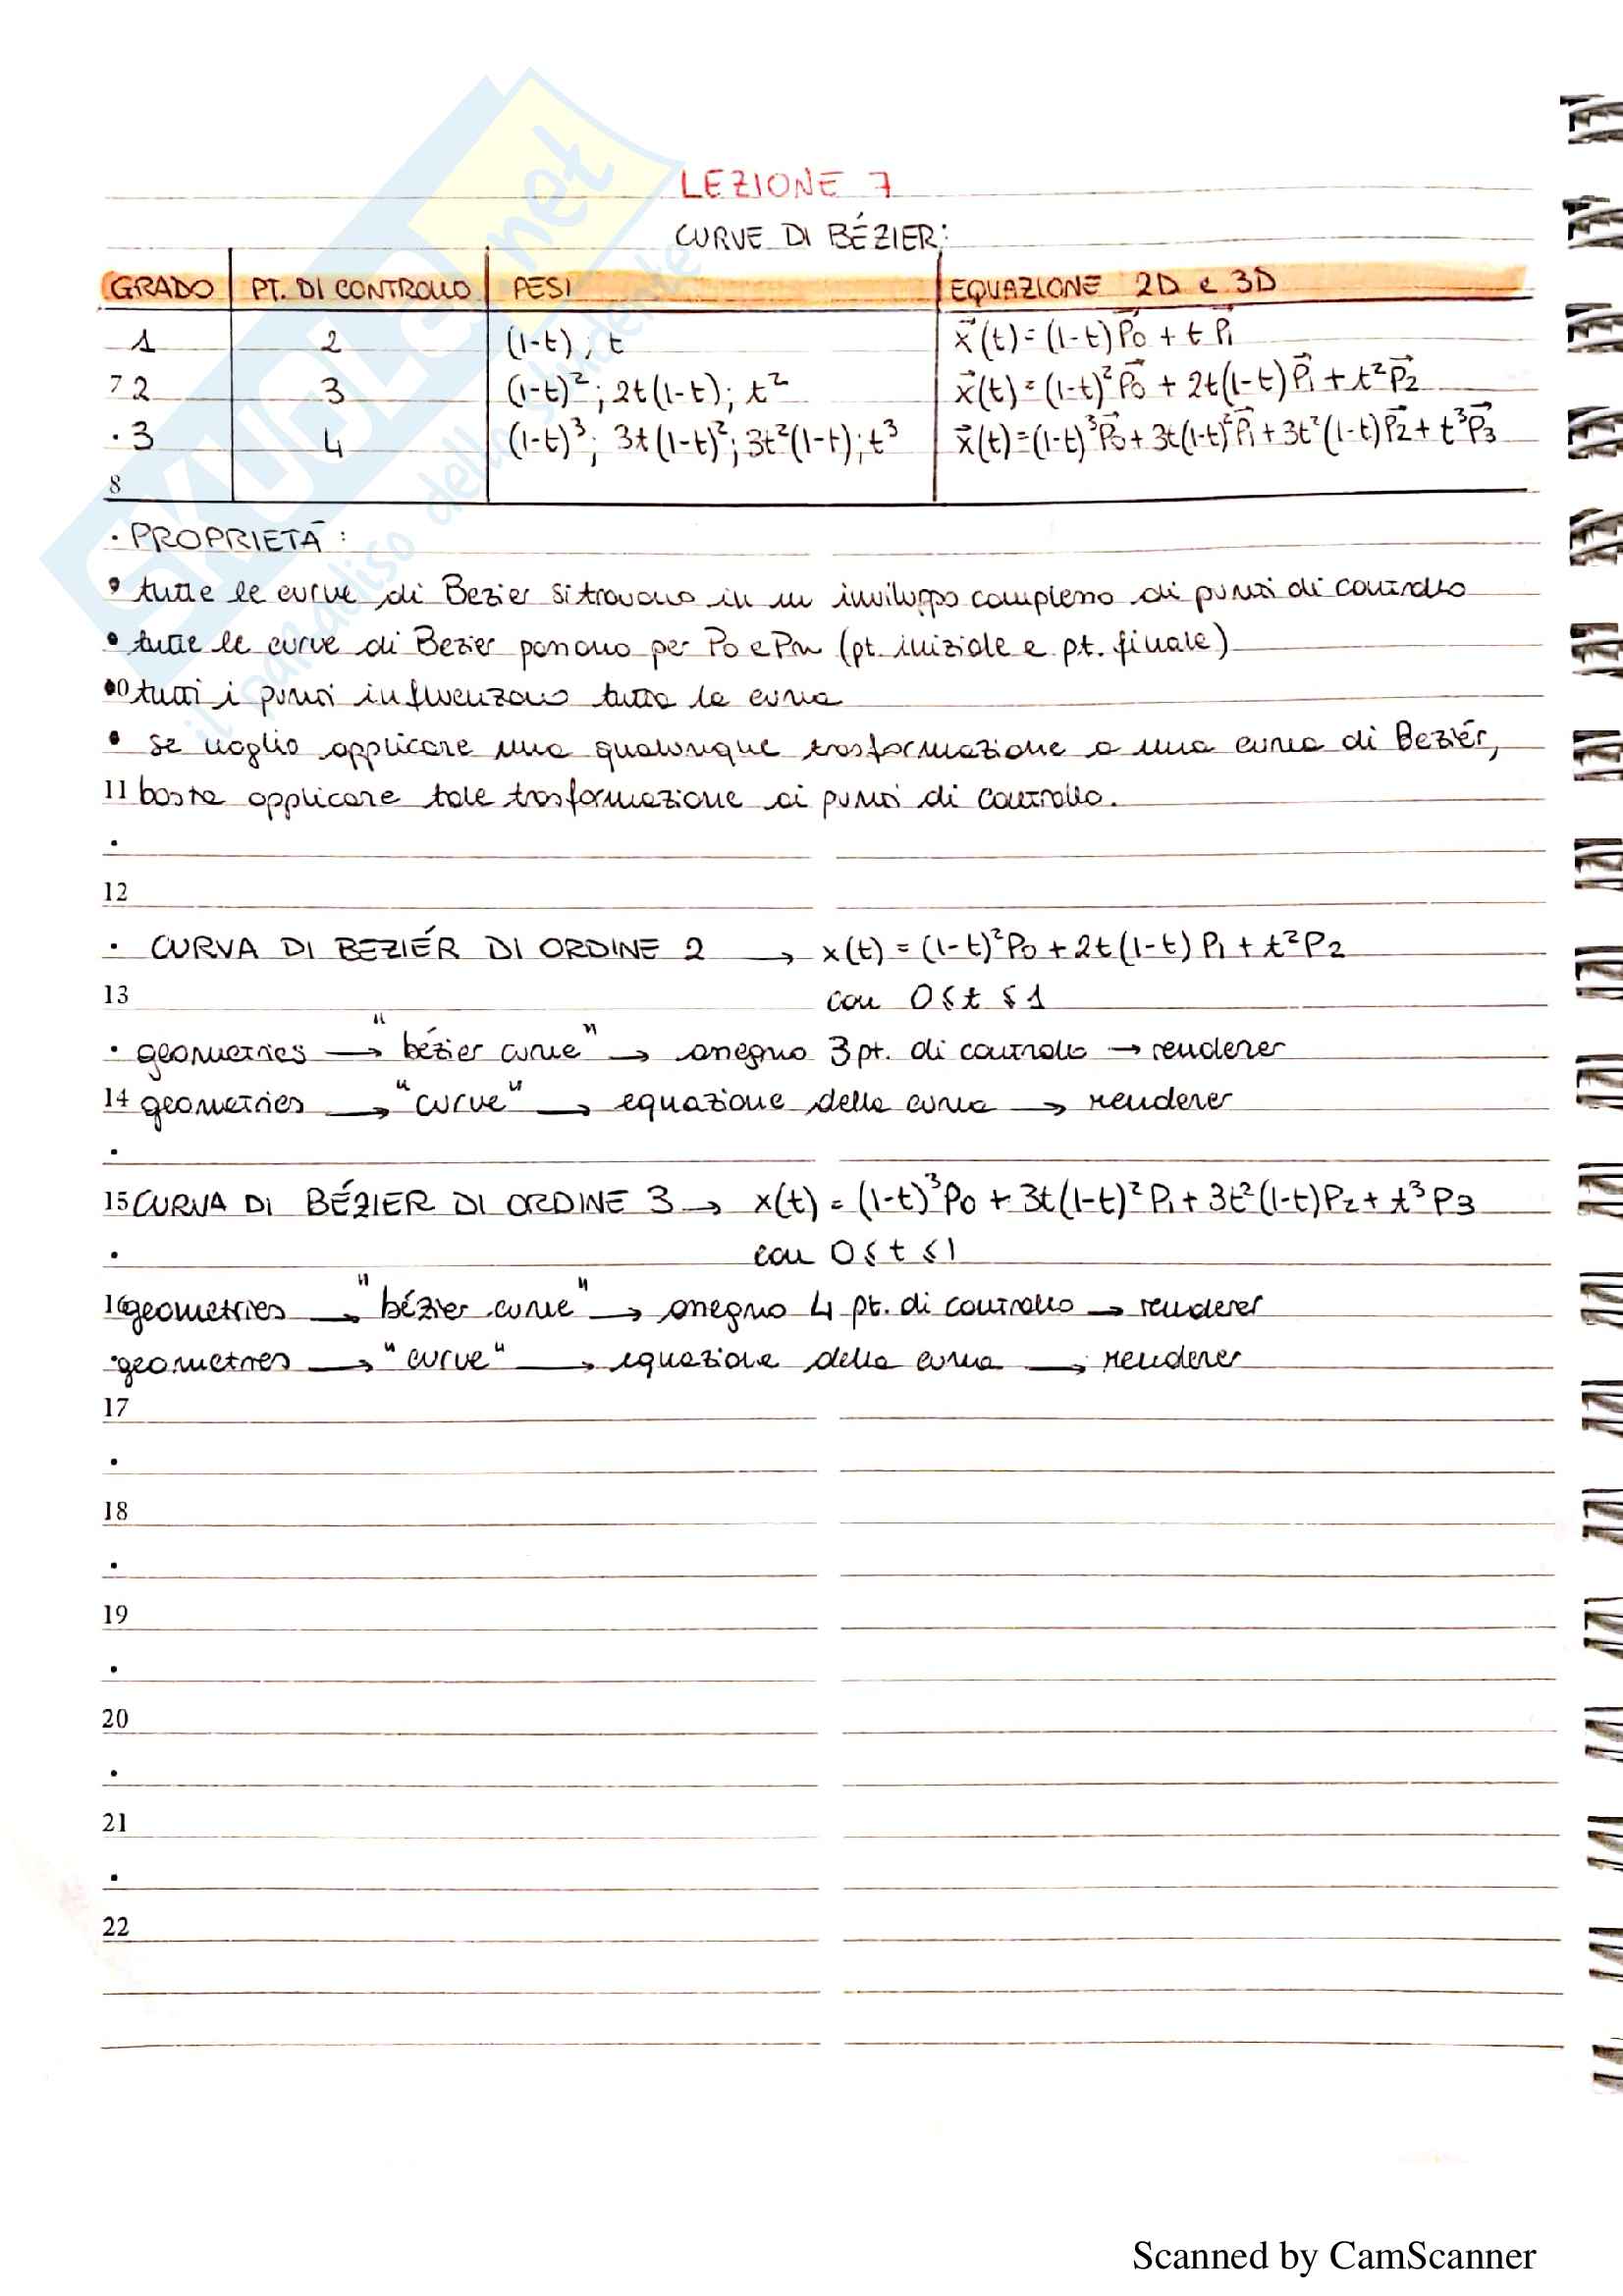 LEZIONE 7
CURVE DI BÉZIER:
GRADO PT. DI CONTROLLO PESI EQUAZIONE 2D e 3D
1 2 (1-t) ; t x⃗(t) = (1-t) P⃗0 + t P⃗1
7 2 3 (1-t)²; 2t(1-t); t² x⃗(t) = (1-t)² P⃗0 + 2t(1-t) P⃗1 + t² P⃗2
· 3 4 (1-t)³; 3t(1-t)²; 3t²(1-t); t³ x⃗(t) = (1-t)³ P⃗0 + 3t(1-t)² P⃗1 + 3t²(1-t) P⃗2 + t³ P⃗3
8
· PROPRIETÀ :
• tutte le curve di Bezier si trovano in un inviluppo complesso di punti di controllo
• tutte le curve di Bezier passano per P0 e Pn (pt. iniziale e pt. finale)
•0 tutti i punti influenzano tutta la curva
• se voglio applicare una qualunque trasformazione a una curva di Beziér,
11 basta applicare tale trasformazione ai punti di controllo.
·
12
· CURVA DI BEZIÉR DI ORDINE 2 → x(t) = (1-t)² P0 + 2t(1-t) P1 + t² P2
13 con 0 ≤ t ≤ 1
· geometries → "bézier curve" → assegno 3 pt. di controllo → renderer
14 geometries → "curve" → equazione della curva → renderer
·
15 CURVA DI BÉZIER DI ORDINE 3 → x(t) = (1-t)³ P0 + 3t(1-t)² P1 + 3t²(1-t) P2 + t³ P3
· con 0 ≤ t ≤ 1
16 geometries → "bézier curve" → assegno 4 pt. di controllo → renderer
· geometries → "curve" → equazione della curva → renderer
17
·
18
·
19
·
20
·
21
·
22
SKUOLA.net
il paradiso dello studente
Scanned by CamScanner